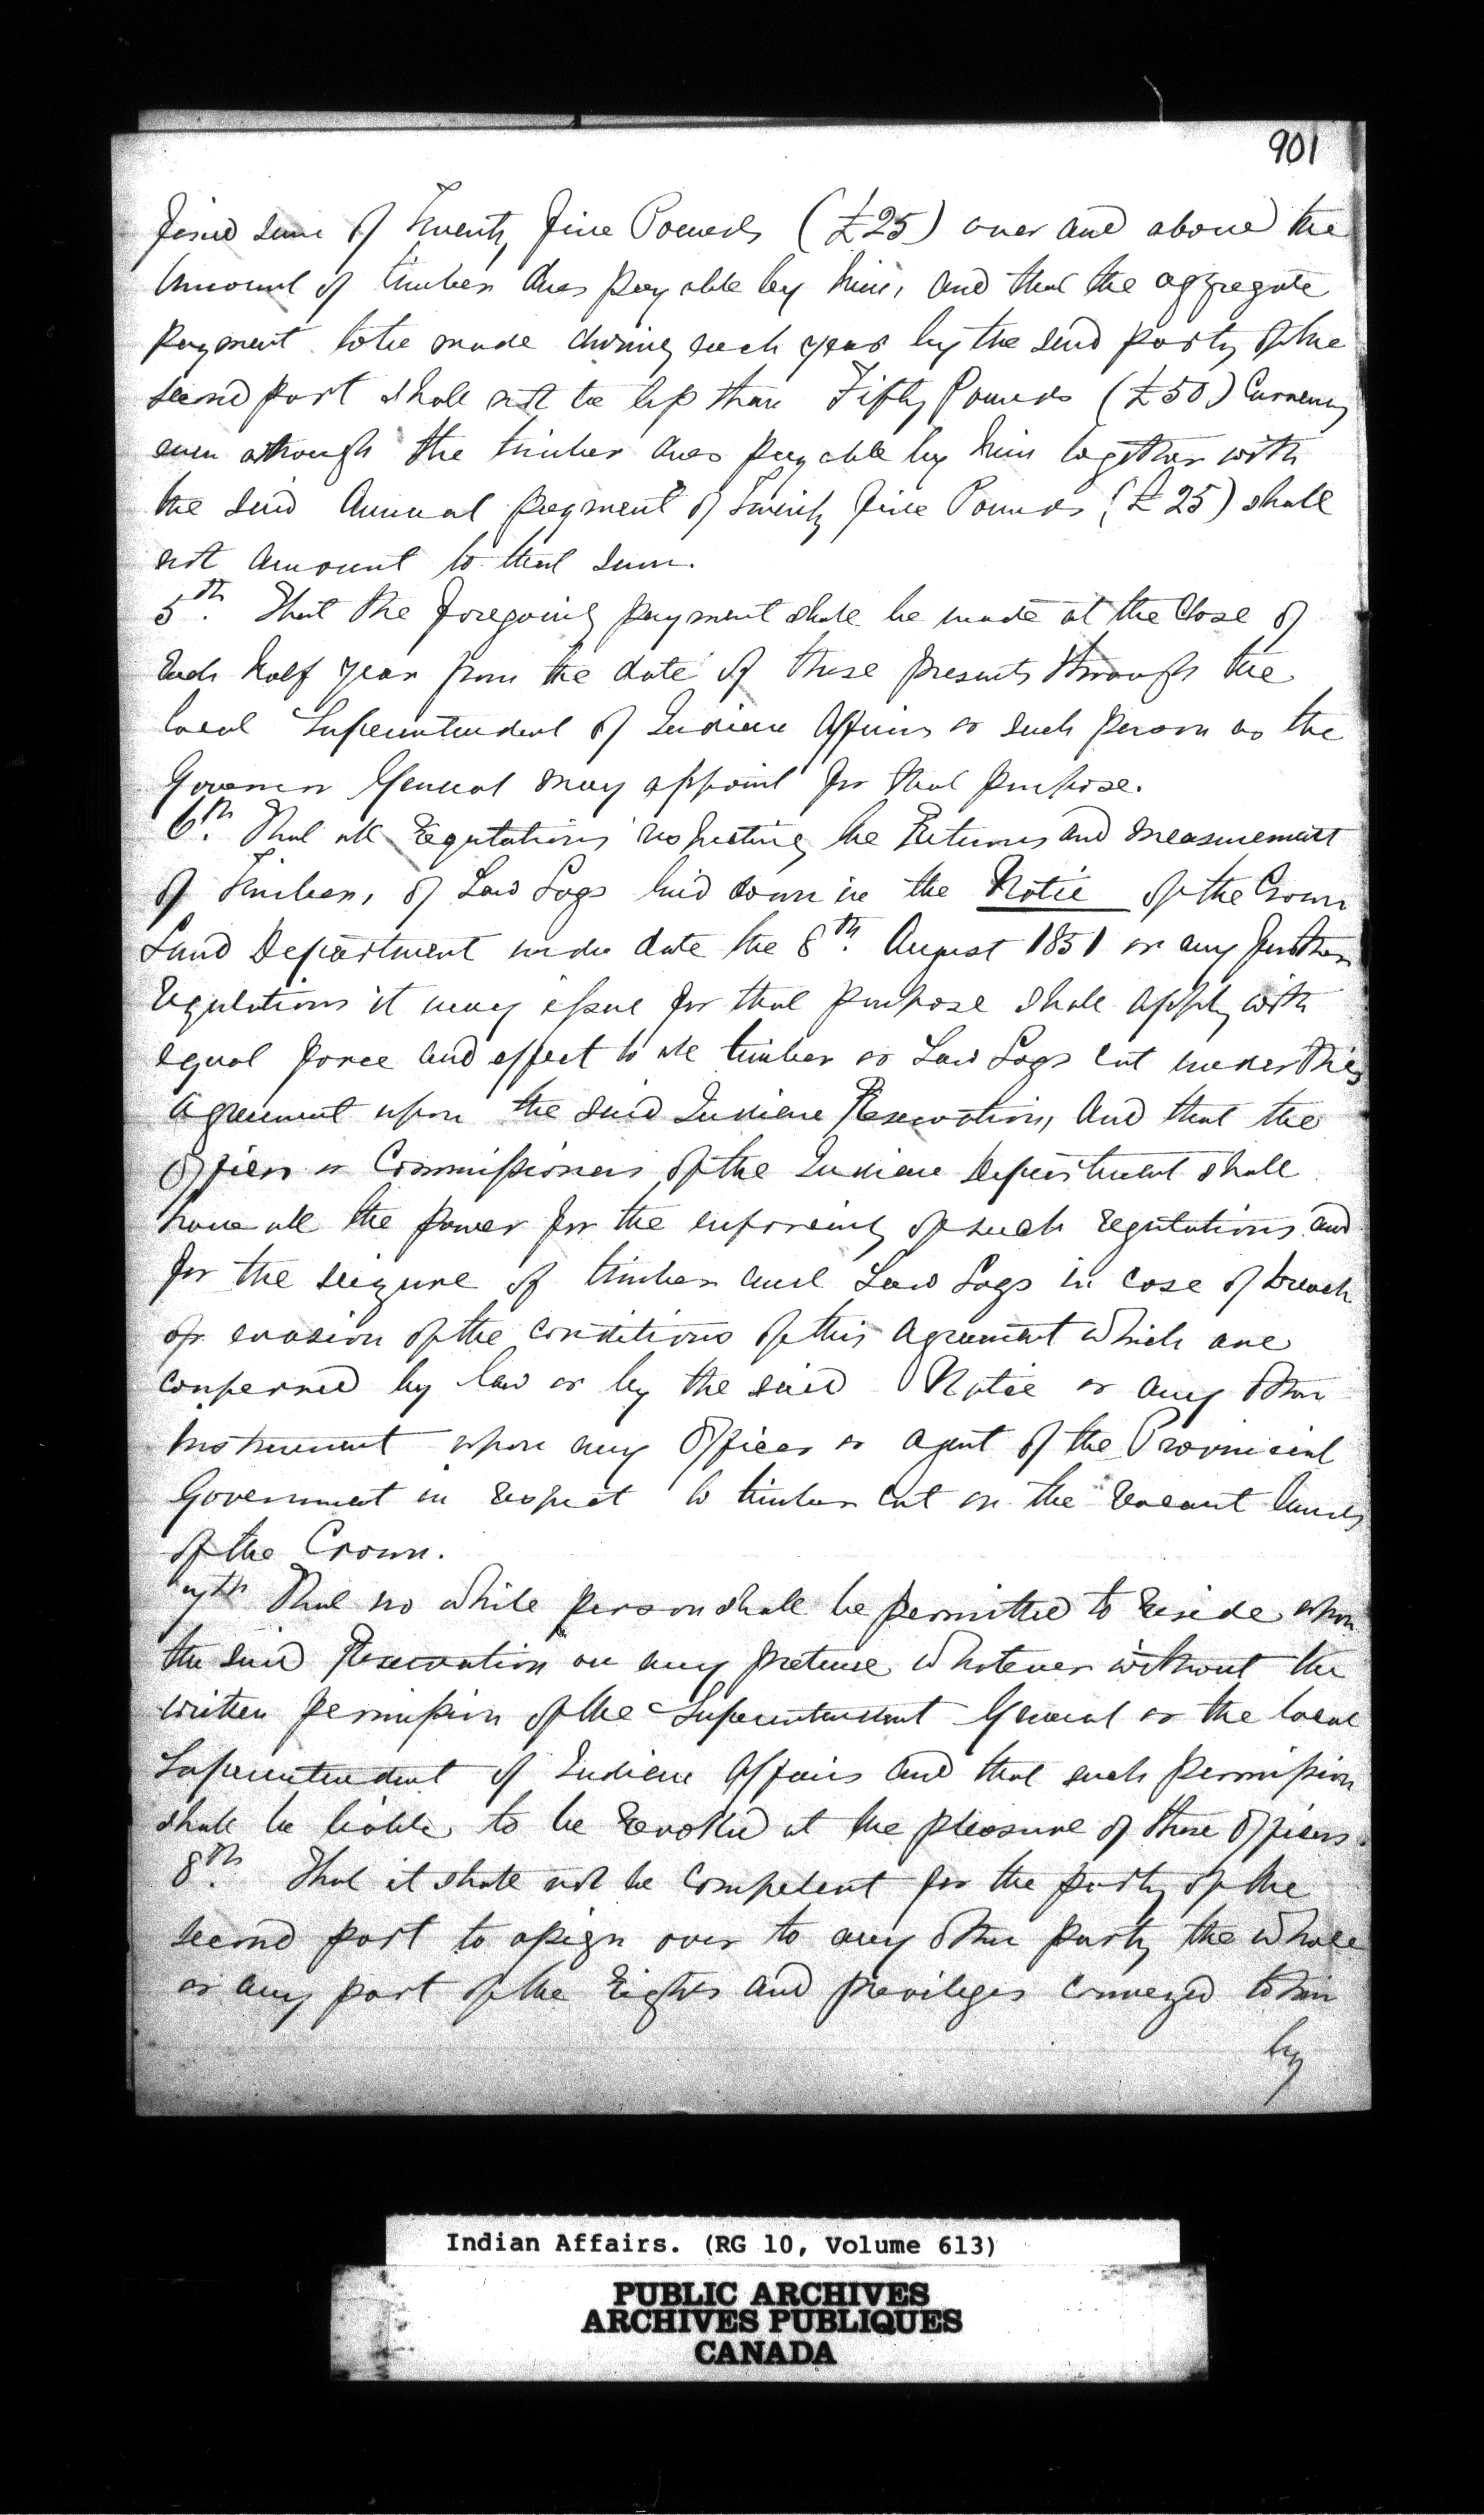 901
fixed sum of Twenty five Pounds (£25) over and above the
amount of timber dues payable by him, and that the aggregate
payment to be made during each year by the said party of the
second part shall not be less than Fifty Pounds (£50) Currency
even although the timber dues payable by him together with
the said Annual payment of Twenty five Pounds (£25) shall
not amount to that sum.
5th. That the foregoing payment shall be made at the Close of
Each half year from the date of these presents through the
local Superintendent of Indian Affairs or such person as the
Governor General may appoint for that purpose.
6th. That all Regulations respecting the Returns and measurement
of Timber, of Saw Logs laid down in the Notice of the Crown
Land Department under date the 8th. August 1851 or any further
regulations it may issue for that purpose shall apply with
equal force and effect to all timber or Saw Logs cut under this
Agreement upon the said Indian Reservation, and that the
Officers or Commissioners of the Indian Department shall
have all the power for the enforcing of such regulations and
for the seizure of timber and Saw Logs in case of breach
or evasion of the conditions of this Agreement which are
conferred by law or by the said Notice or any other
instrument upon any Officer or agent of the Provincial
Government in respect to timber cut on the vacant lands
of the Crown.
7th That no white person shall be permitted to reside upon
the said Reservation on any pretense whatever without the
written permission of the Superintendent General or the local
Superintendent of Indian Affairs and that such permission
shall be liable to be revoked at the pleasure of those Officers.
8th. That it shall not be competent for the party of the
second part to assign over to any other party the whole
or any part of the rights and privileges conveyed to him
by
Indian Affairs. (RG 10, Volume 613)
PUBLIC ARCHIVES
ARCHIVES PUBLIQUES
CANADA